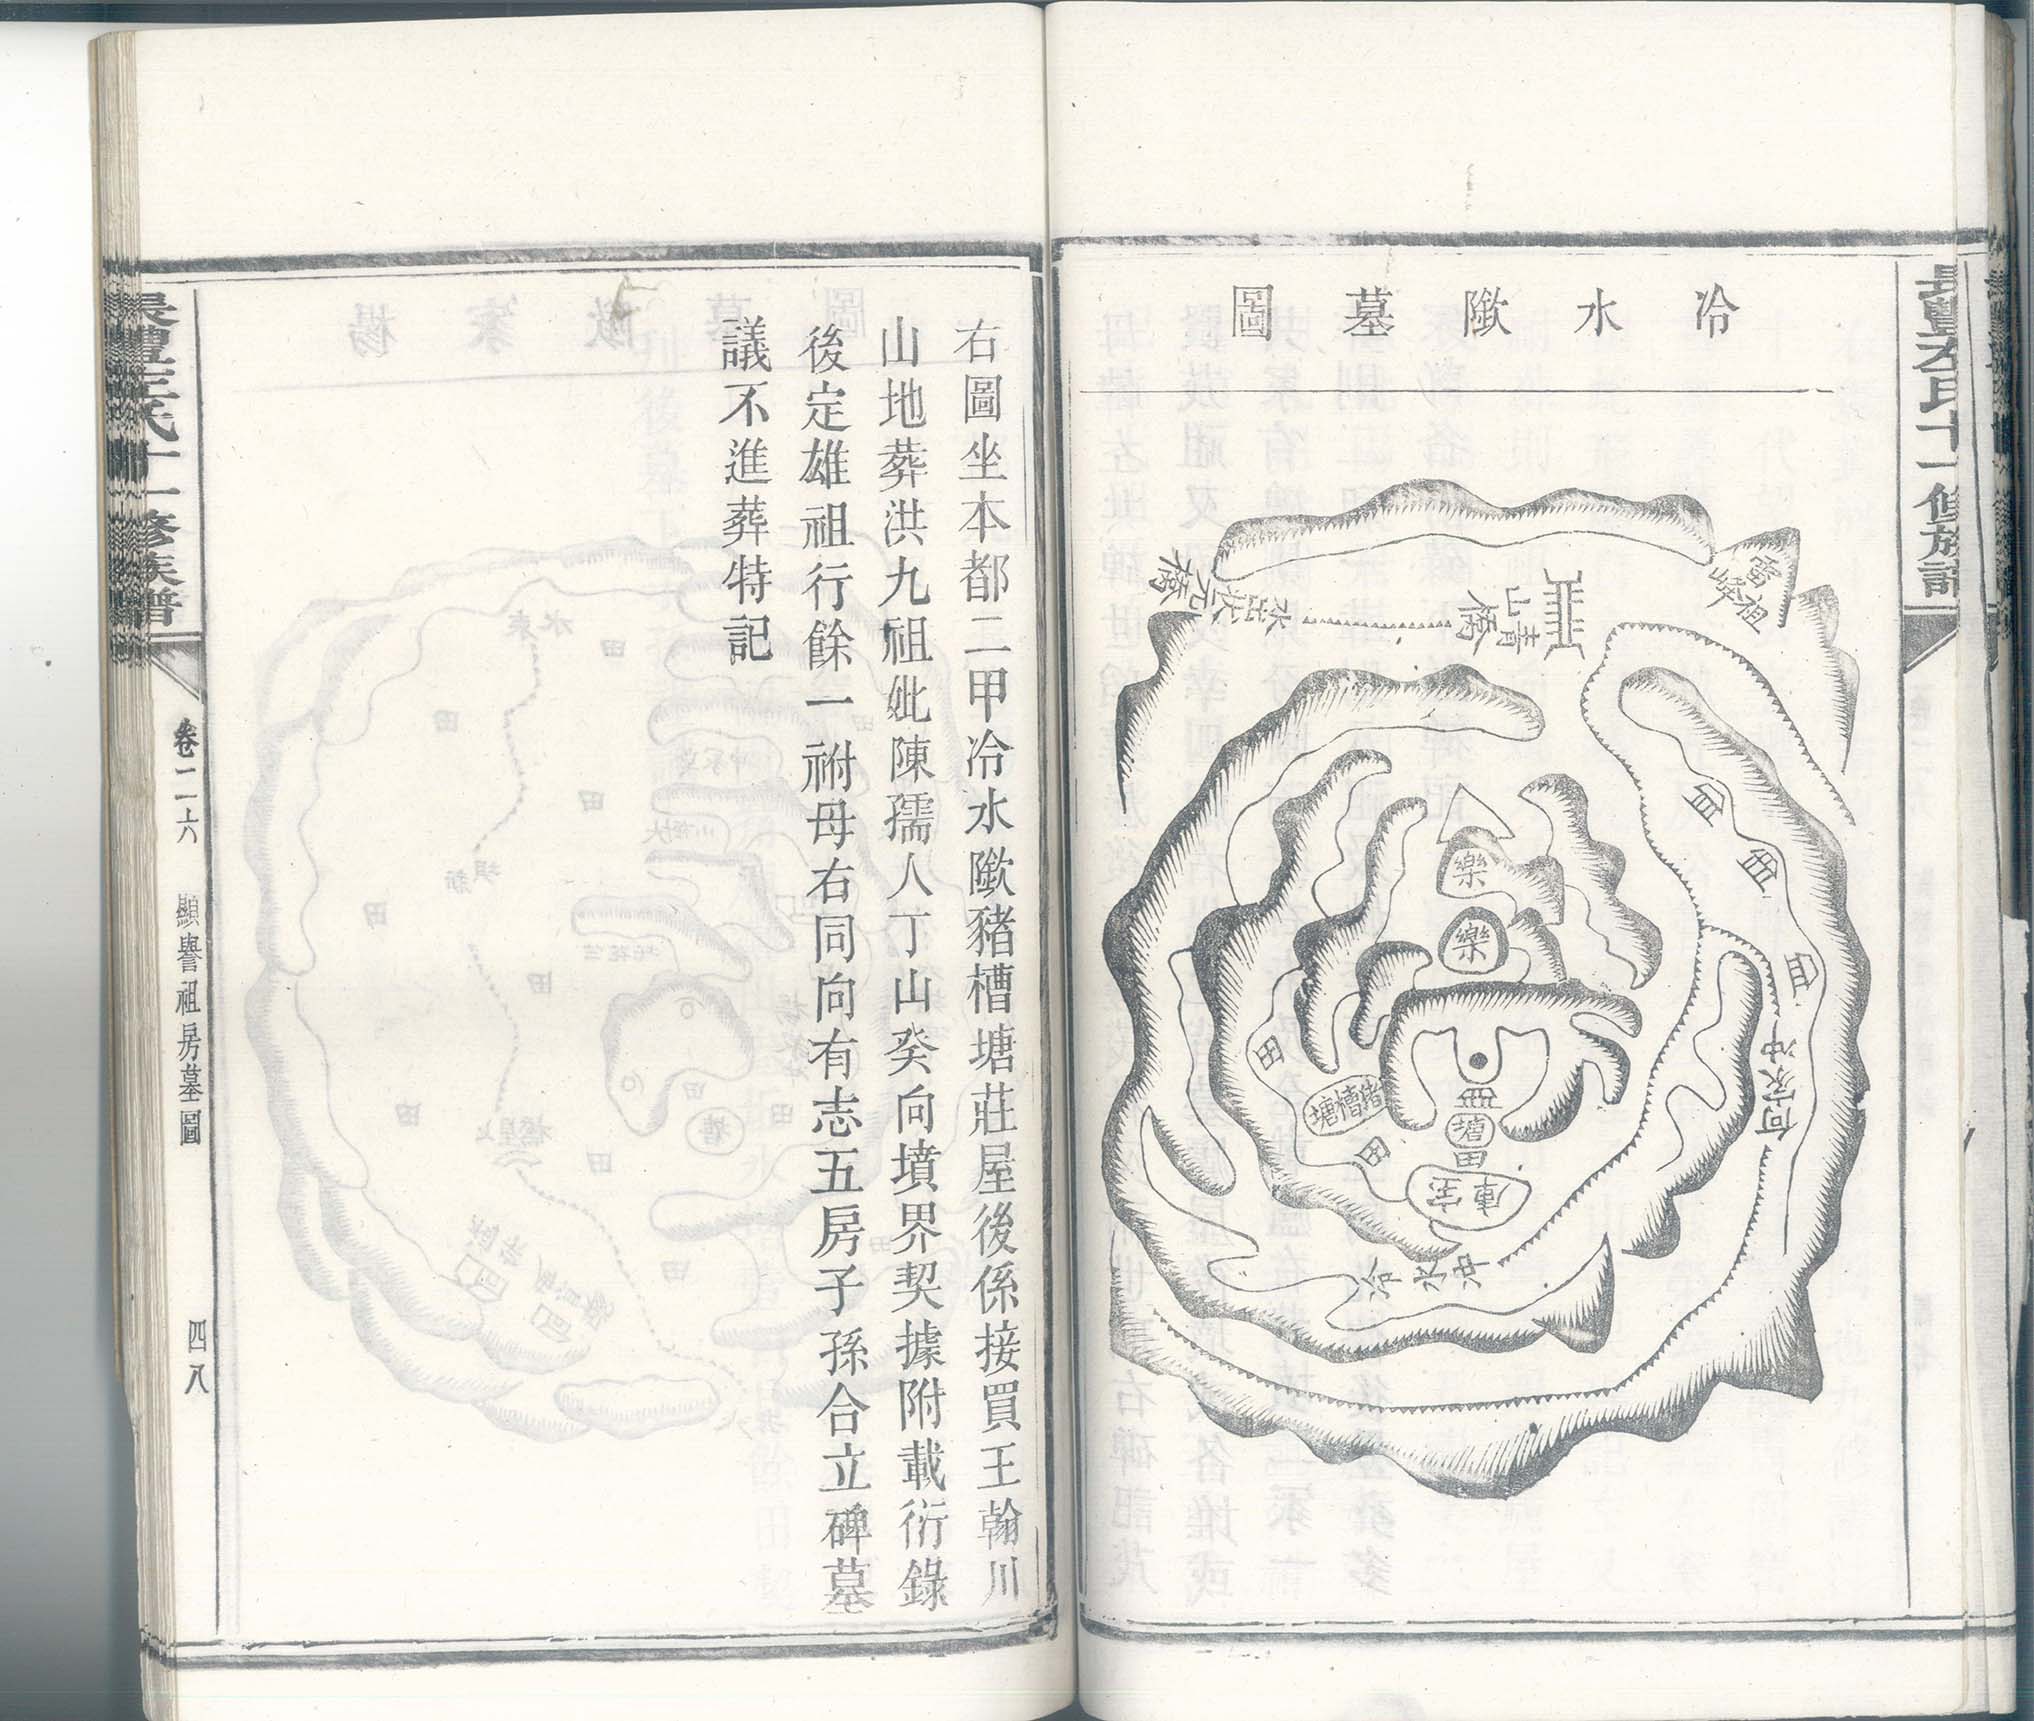 冷水㘔墓圖
雷祖峰
青山橋
水出伏元橋
田
田
田
何家冲
樂
樂
田
豬槽塘
田
塘
田
庫宝
冷水冲
右圖坐本都二甲冷水㘔豬槽塘莊屋後係接買王翰川
山地葬洪九祖妣陳孺人丁山癸向墳界契據附載衍錄
後定雄祖行餘一祔母右同向有志五房子孫合立碑墓
議不進葬特記
氏十一修族譜
卷二六
顯譽祖房墓圖
四八